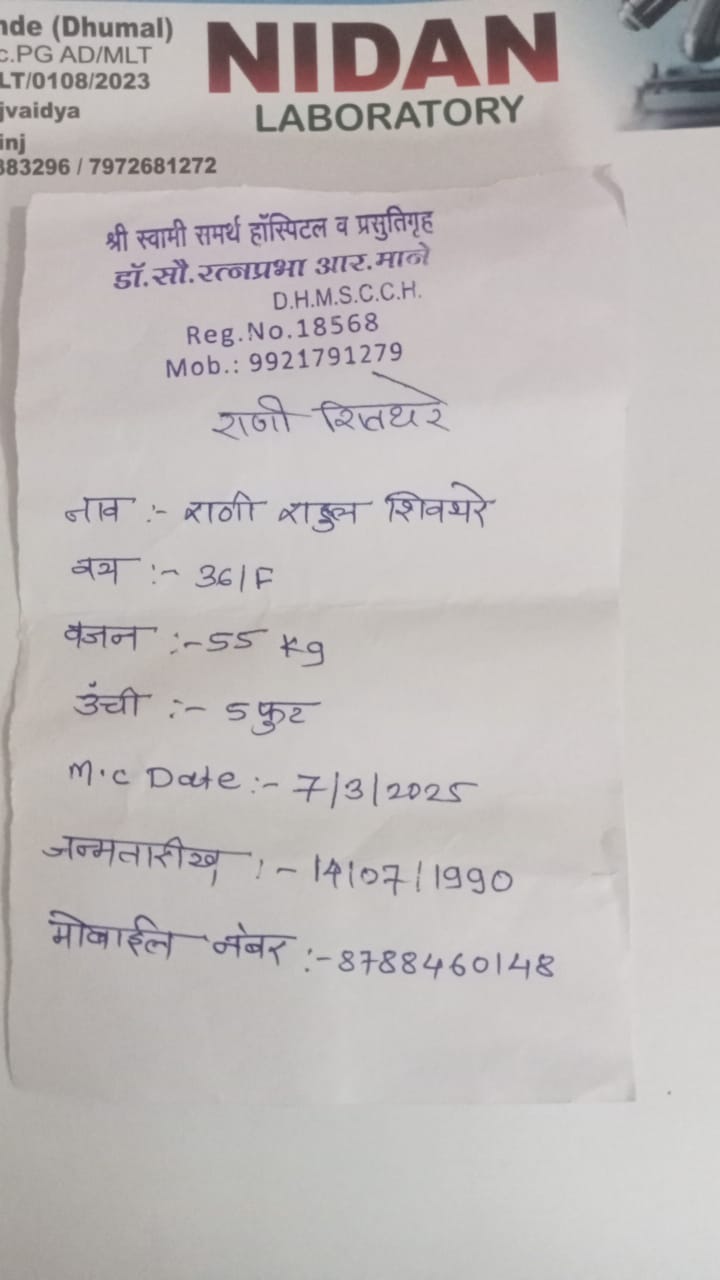 nde (Dhumal)
c.PG AD/MLT
LT/0108/2023
jvaidya
inj
883296 / 7972681272
NIDAN
LABORATORY
श्री स्वामी समर्थ हॉस्पिटल व प्रसुतिगृह
डॉ.सौ.रत्नप्रभा आर.माने
D.H.M.S.C.C.H.
Reg.No.18568
Mob.: 9921791279
राणी शिवथरे
नाव :- राणी राहुल शिवथरे
वय :- 36/F
वजन :- 55 kg
उंची :- 5 फुट
M.C Date :- 7/3/2025
जन्मतारीख :- 14/07/1990
मोबाईल नंबर :- 8788460148